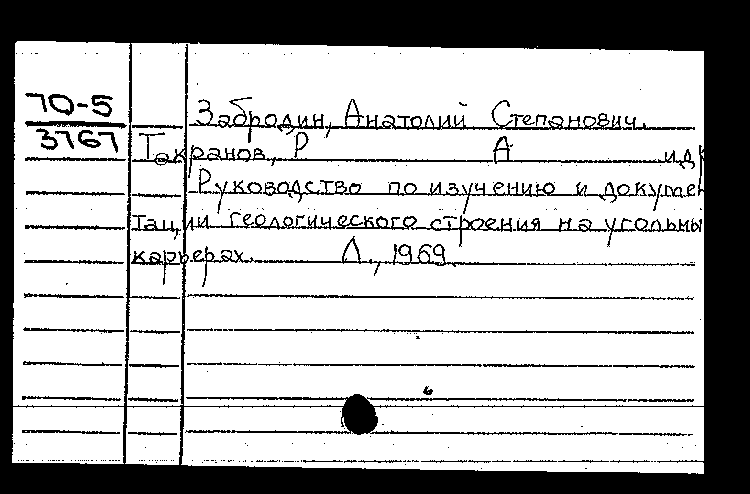 70-5
3767
Забродин, Анатолий Степанович.
Такранов, Р А и др
Руководство по изучению и докумен
тации геологического строения на угольны
карьерах. Л., 1969.